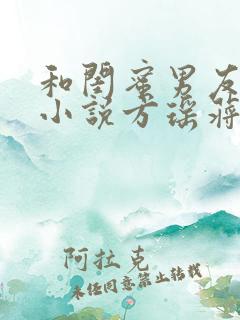 和闺蜜男友
小说方瑶蒋
阿拉克
未经同意禁止转载